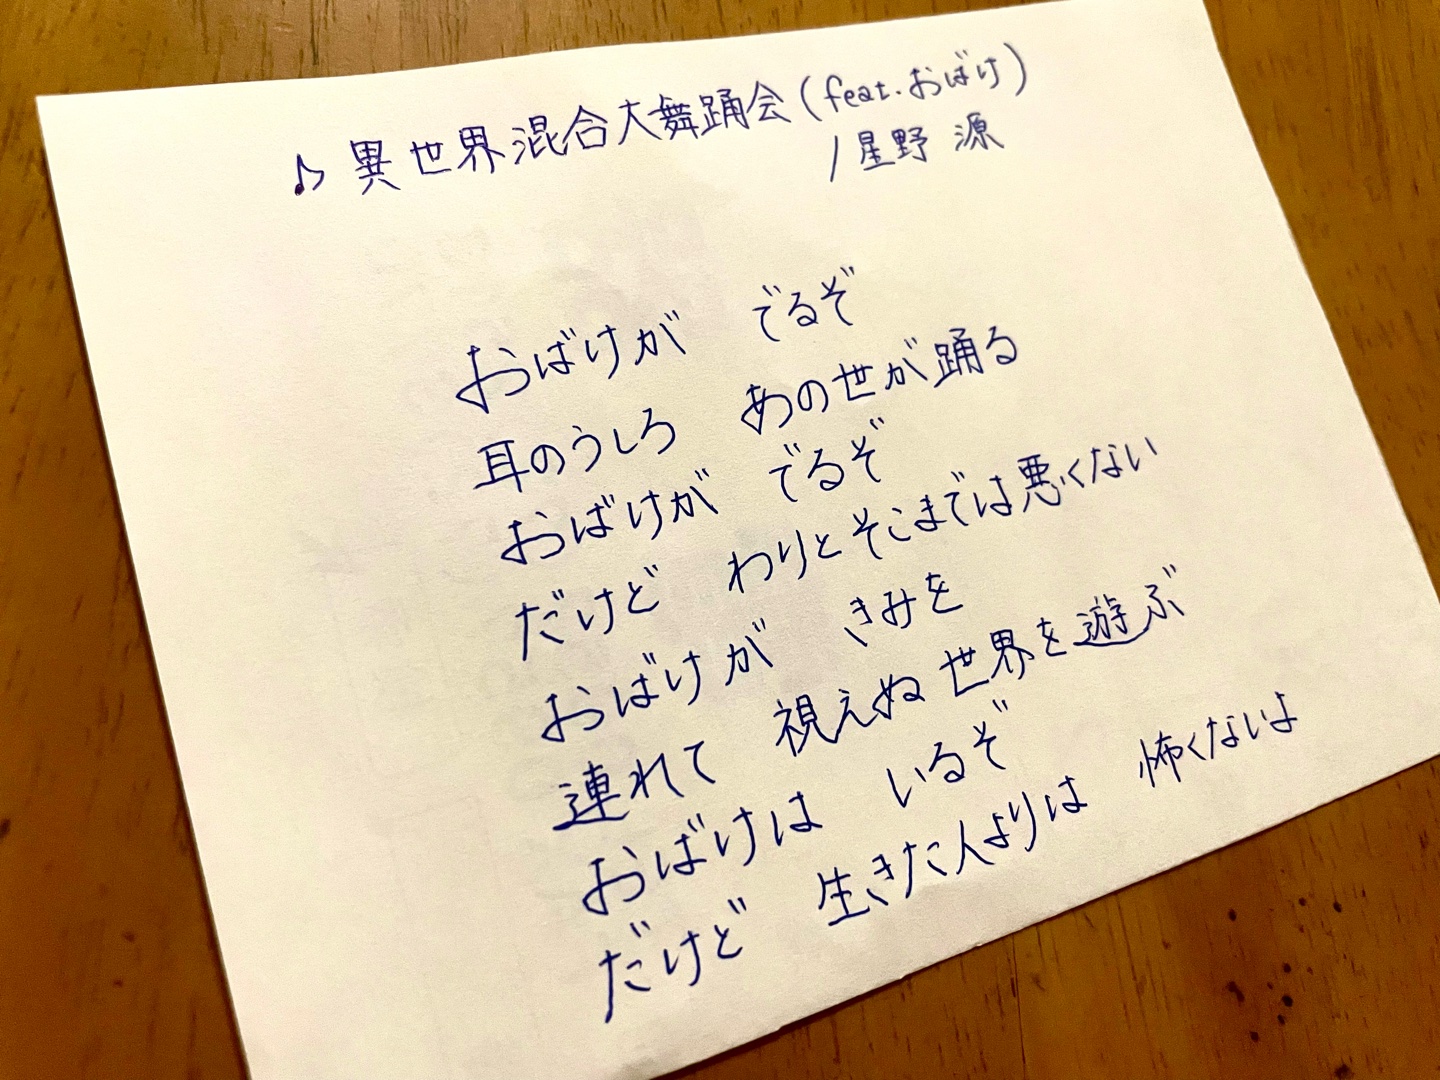 ♪ 異世界混合大舞踊会(feat.おばけ)
/星野 源
おばけが でるぞ
耳のうしろ あの世が踊る
おばけが でるぞ
だけど わりとそこまでは悪くない
おばけが きみを
連れて 視えぬ世界を遊ぶ
おばけは いるぞ
だけど 生きた人よりは 怖くないよ